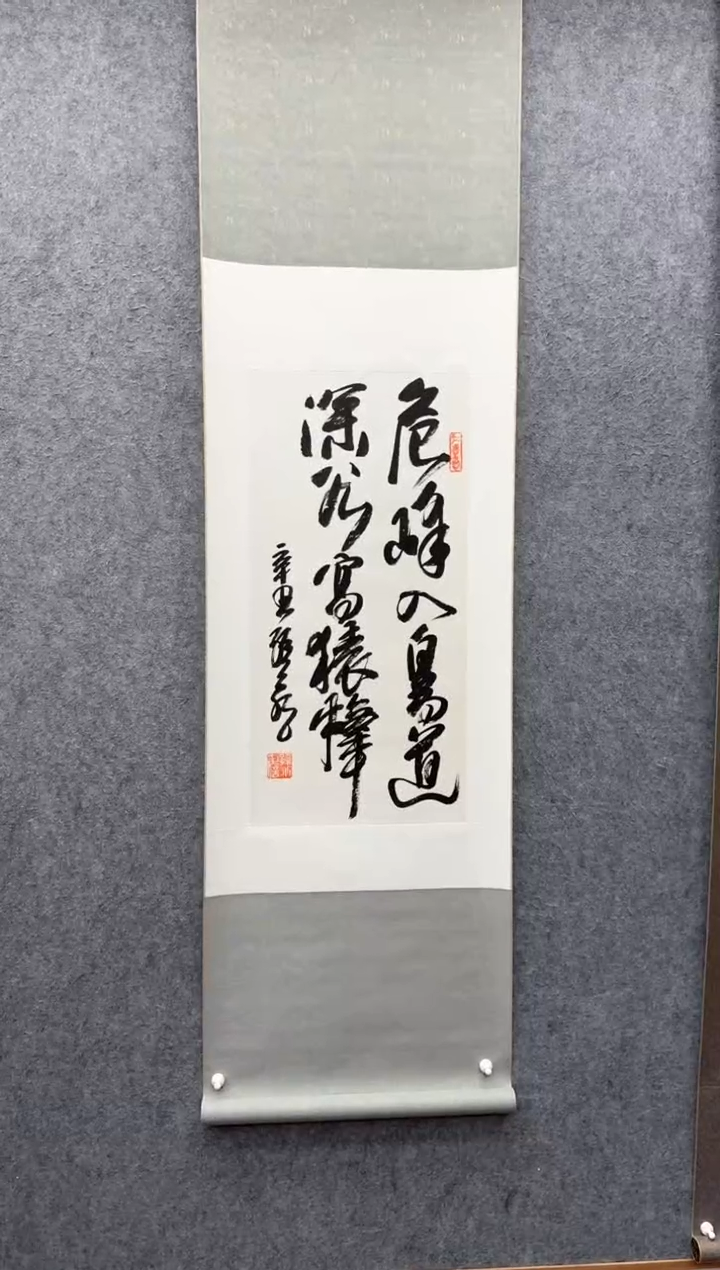 危峰入鳥道
深谷寫猿聲
辛丑